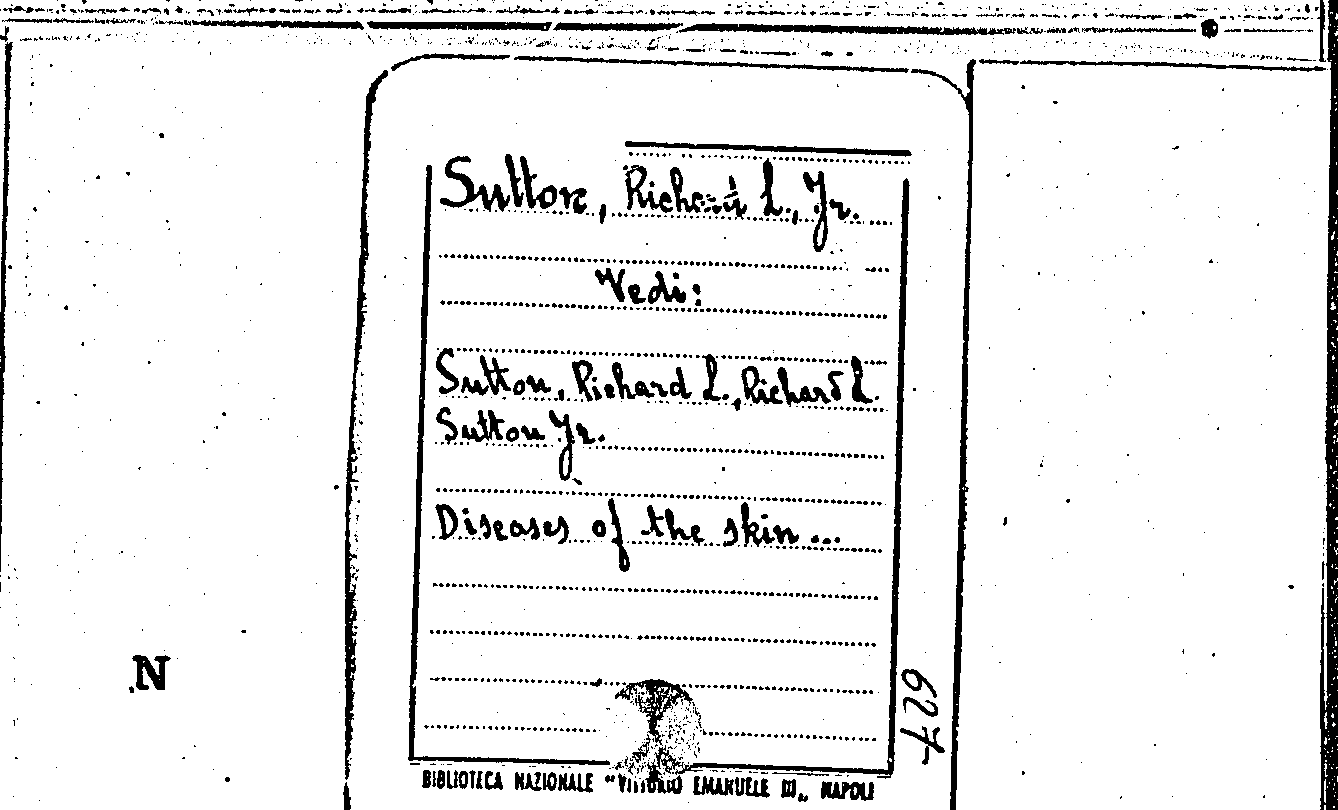 Sutton, Richard L., Jr.
Vedi:
Sutton, Richard L., Richard L.
Sutton Jr.
Diseases of the skin...
N
627
BIBLIOTECA NAZIONALE "VITTORIO EMANUELE III„ NAPOLI